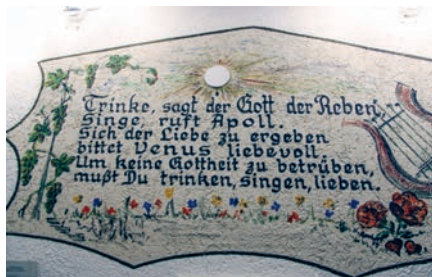 Trinke, sagt der Gott der Reben,
Singe, ruft Apoll.
Sich der Liebe zu ergeben
bittet Venus liebevoll.
Um keine Gottheit zu betrüben,
mußt Du trinken, singen, lieben.